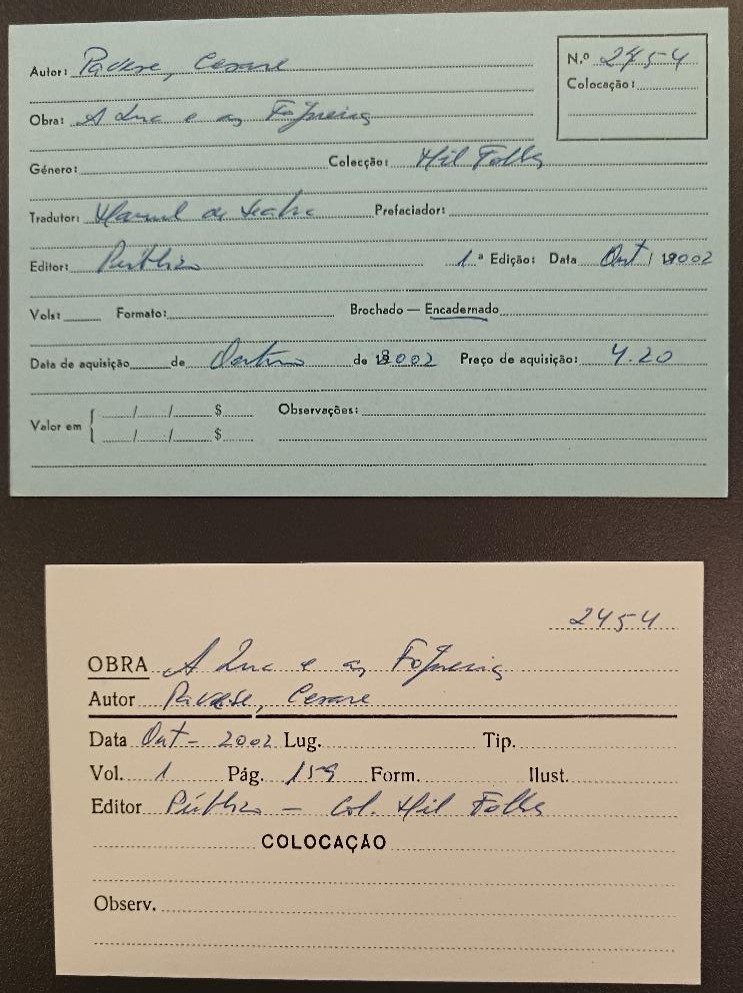 Autor: Pavese, Cesare
N.º 2454
Colocação:
Obra: A Lua e as Fogueiras
Género: Colecção: Mil Folhas
Tradutor: Manuel de Seabra Prefaciador:
Editor: Público 1.ª Edição: Data Out / 2002
Vols: Formato: Brochado — Encadernado
Data de aquisição de Outubro de 2002 Preço de aquisição: 4.20
Valor em / / $ Observações:
/ / $
2454
OBRA A Lua e as Fogueiras
Autor Pavese, Cesare
Data Out - 2002 Lug. Tip.
Vol. 1 Pág. 159 Form. Ilust.
Editor Público — Col. Mil Folhas
COLOCAÇÃO
Observ.